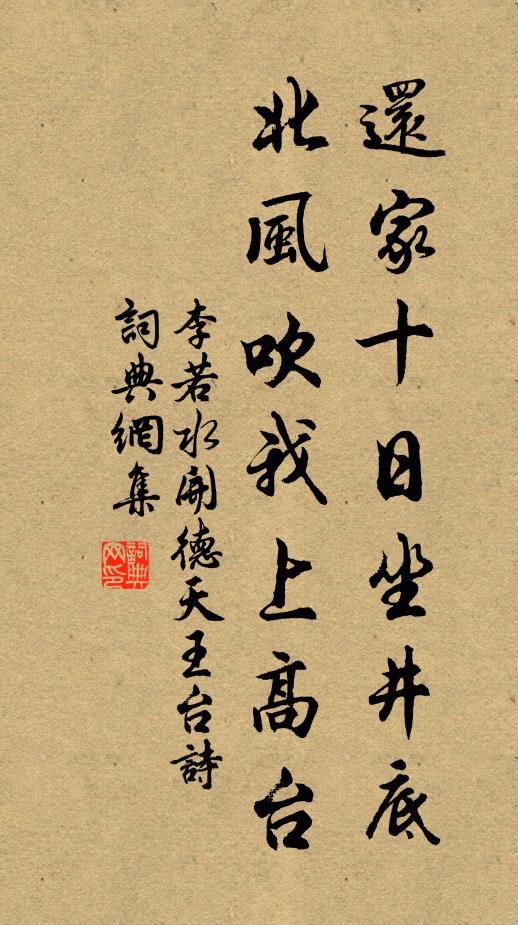 還家十日坐井底
北風吹我上高台
李若水開德天王台詩
詞典網集
詞典網印